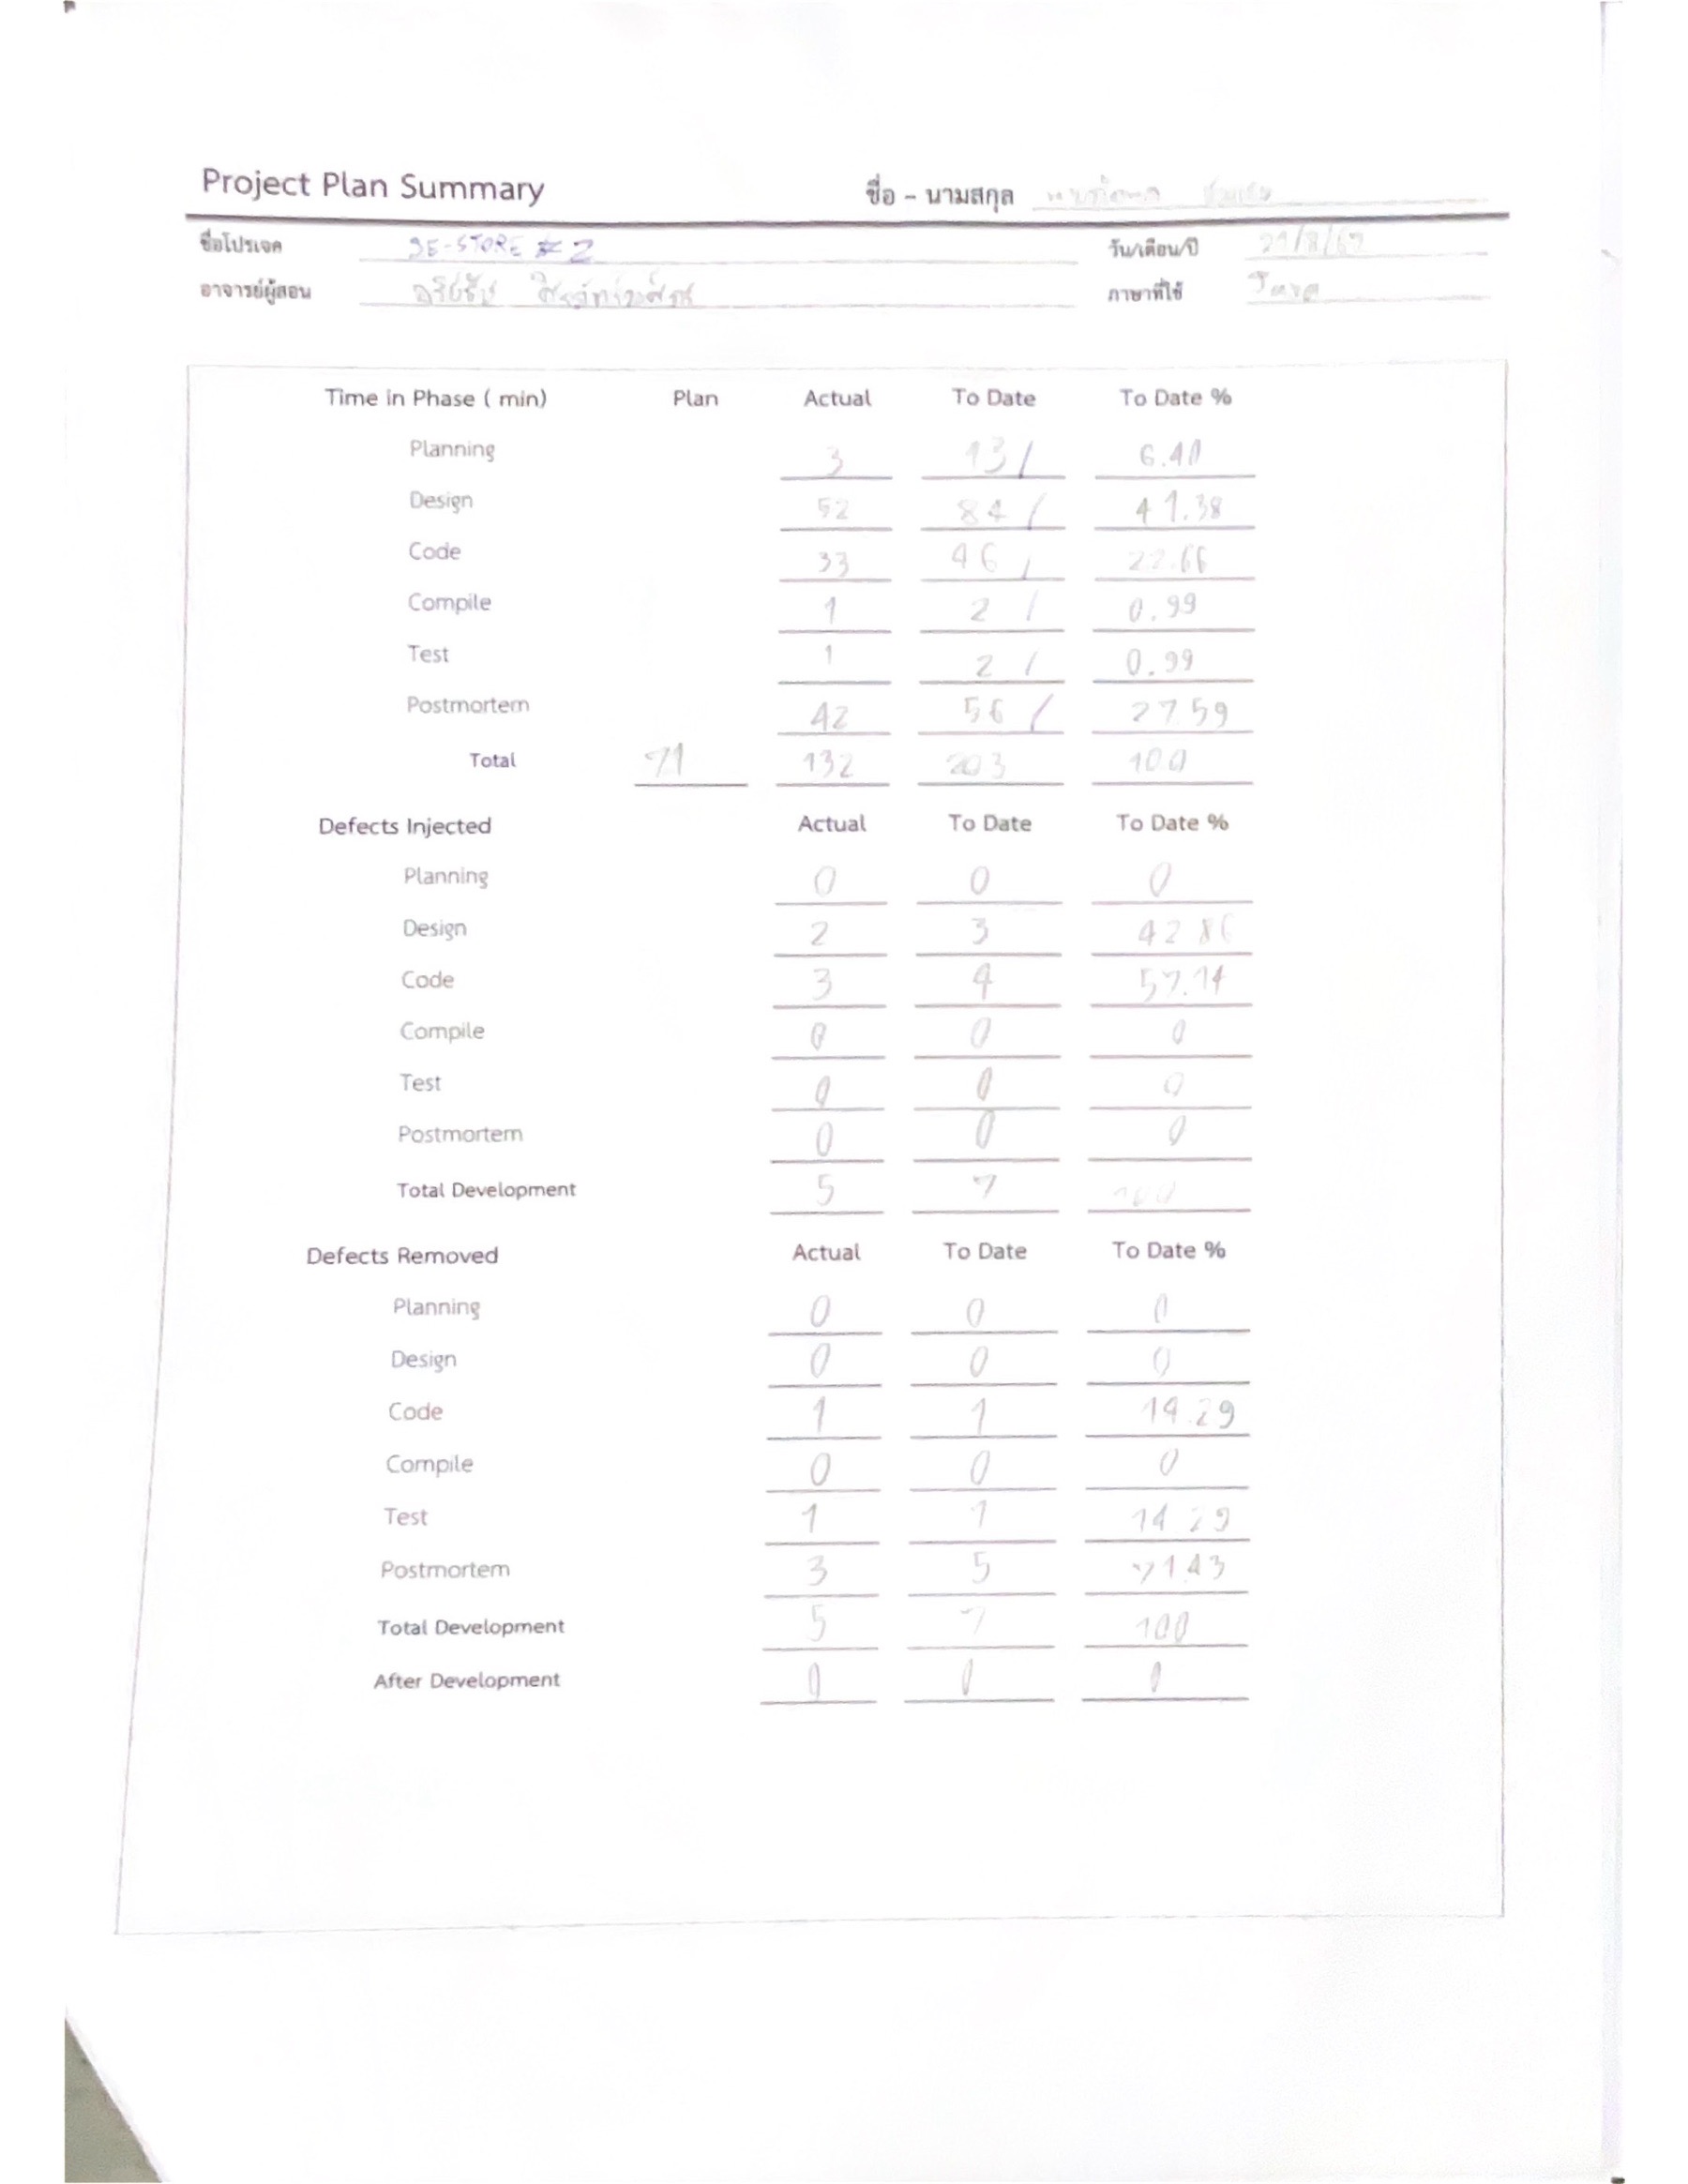 Project Plan Summary ชื่อ - นามสกุล
ชื่อโปรเจค SE-STORE #2 วัน/เดือน/ปี 21/8/67
อาจารย์ผู้สอน ภาษาที่ใช้ Java
Time in Phase ( min) Plan Actual To Date To Date %
Planning 3 13 / 6.40
Design 52 84 / 41.38
Code 33 46 / 22.66
Compile 1 2 / 0.99
Test 1 2 / 0.99
Postmortem 42 56 / 27.59
Total 71 132 203 100
Defects Injected Actual To Date To Date %
Planning 0 0 0
Design 2 3 42.86
Code 3 4 57.14
Compile 0 0 0
Test 0 0 0
Postmortem 0 0 0
Total Development 5 7 100
Defects Removed Actual To Date To Date %
Planning 0 0 0
Design 0 0 0
Code 1 1 14.29
Compile 0 0 0
Test 1 1 14.29
Postmortem 3 5 71.43
Total Development 5 7 100
After Development 0 0 0